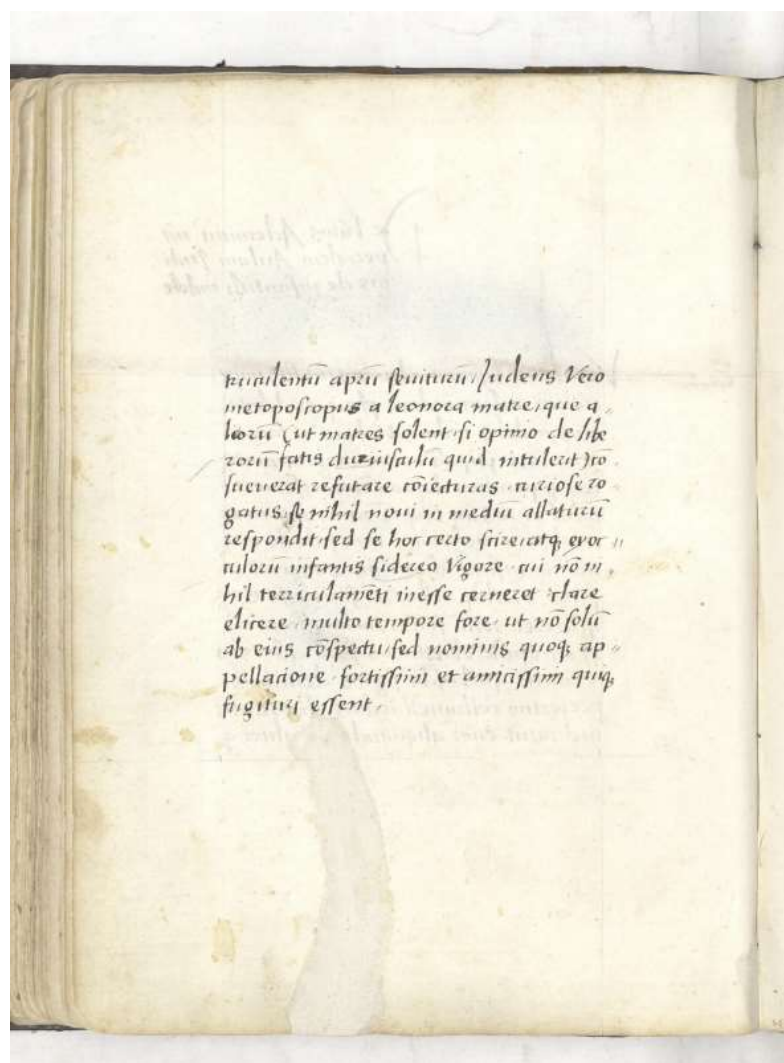 truculentū aprū seuiturū, Iudeus Vero
metoposcopus a leonora matre, que a„
liorū (ut matres solent, si opinio de libe
rorū fatis duriusculū quid intulerit) cō
sueuerat refutare cōiecturas curiose ro
gatus, se nihil noui in mediū allaturū
respondit, sed se hoc certo scire, atq; ex oc„
culorū infantis sidereo Vigore, cui nō ni„
hil terriculamēti inesse cerneret clare
elicere, multo tempore fore, ut nō solū
ab eius cōspectu, sed nominis quoq; ap„
pellacione fortissimi et amicissimi quiq;
fugituri essent,